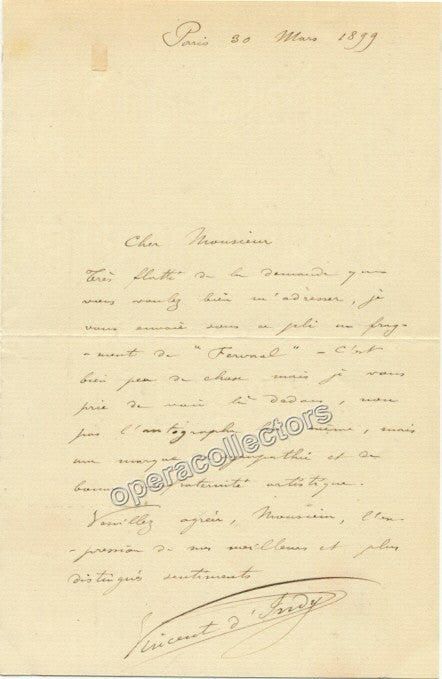 Paris 30 Mars 1899
Cher Monsieur
Très flatté de la demande que
vous voulez bien m'adresser, je
vous envoie sous ce pli un frag-
-ment de "Fervaal" - C'est
bien peu de chose mais je vous
prie de voir là dedans, non
pas l'autographe lui même, mais
une marque de sympathie et de
bonne fraternité artistique.
Veuillez agréer, Monsieur, l'ex-
-pression de mes meilleurs et plus
distingués sentiments
Vincent d'Indy
operacollectors